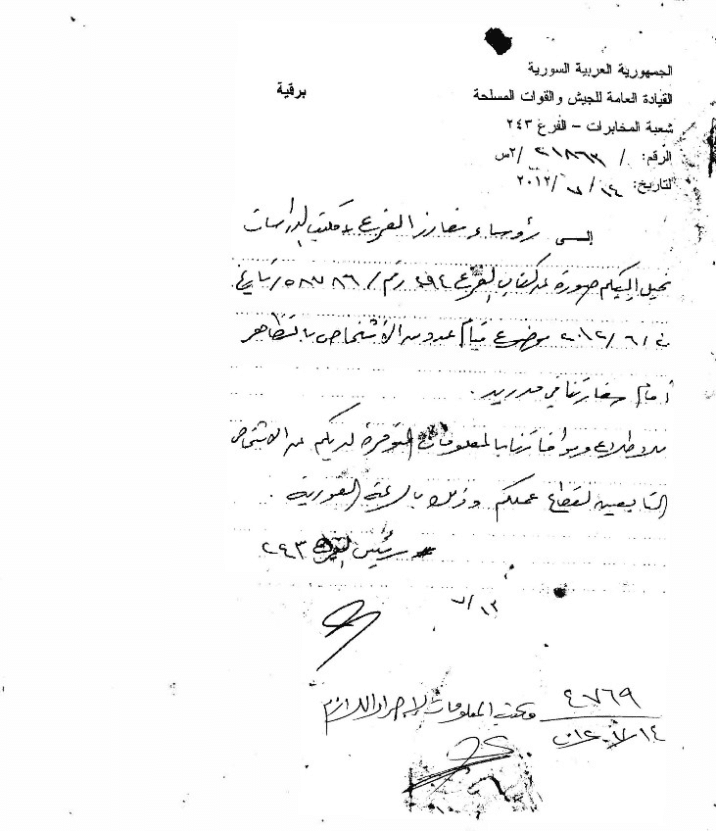 الجمهورية العربية السورية
القيادة العامة للجيش والقوات المسلحة
برقية
شعبة المخابرات – الفرع ٢٤٣
الرقم: / ٢١٨٦٣ /٢س
التاريخ: ١٤/ ٧/ ٢٠١٢
إلى رؤساء مفارز الفرع + مكتب الدراسات
نحيل إليكم صورة عن كتاب الفرع ٢٩٤ رقم / ٥٨٧٨٦ / تاريخ
٢٠١٢/٦/ موضوع قيام عدد من الأشخاص بالتظاهر
أمام سفارتنا في مدريد .
للاطلاع وموافاتنا بالمعلومات المتوفرة لديكم عن الأشخاص
التابعين لقطاع عملكم وذلك بالسرعة الفورية .
رئيس الفرع ٢٤٣
٧/١٣
٤٧٦٩
مكتب المعلومات لإجراء اللازم